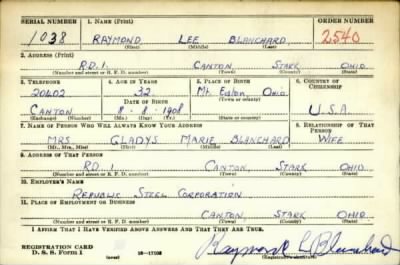 SERIAL NUMBER 1. NAME (Print) ORDER NUMBER
1038 RAYMOND LEE BLANCHARD 2540
(First) (Middle) (Last)
2. ADDRESS (Print)
R.D. 1. CANTON, STARK OHIO.
(Number and street or R. F. D. number) (Town) (County) (State)
3. TELEPHONE 4. AGE IN YEARS 5. PLACE OF BIRTH 6. COUNTRY OF CITIZENSHIP
20402 32 Mt. Eaton,
DATE OF BIRTH (Town or county)
CANTON 8-8-1908 OHIO U.S.A.
(Exchange) (Number) (Mo.) (Day) (Yr.) (State or country)
7. NAME OF PERSON WHO WILL ALWAYS KNOW YOUR ADDRESS 8. RELATIONSHIP OF THAT PERSON
MRS GLADYS MARIE BLANCHARD WIFE
(Mr., Mrs., Miss) (First) (Middle) (Last)
9. ADDRESS OF THAT PERSON
RD. 1. CANTON, STARK OHIO
(Number and street or R. F. D. number) (Town) (County) (State)
10. EMPLOYER'S NAME
REPUBLIC STEEL CORPORATION
11. PLACE OF EMPLOYMENT OR BUSINESS
CANTON, STARK OHIO
(Number and street or R. F. D. number) (Town) (County) (State)
I AFFIRM THAT I HAVE VERIFIED ABOVE ANSWERS AND THAT THEY ARE TRUE.
REGISTRATION CARD
D. S. S. FORM 1 (over) 16-17105 Raymond L Blanchard